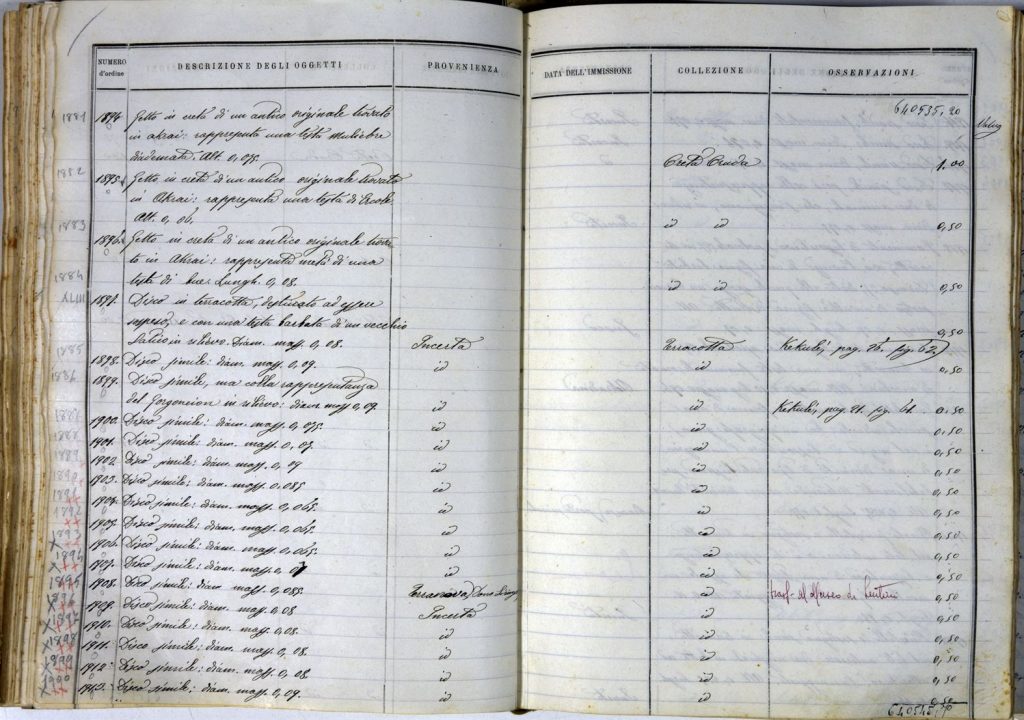 NUMERO d'ordine DESCRIZIONE DEGLI OGGETTI PROVENIENZA DATA DELL'IMMISSIONE COLLEZIONE OSSERVAZIONI
640535,20
1881 1894 Getto in creta di un antico originale trovato
in Akrai: rappresenta una testa muliebre
diademata. Alt. 0,075. Creta Cruda 1.00
1882 1895 Getto in creta d'un antico originale trovato
in Akrai: rappresenta una testa di Ercole
Alt. 0,06. id id 0,50
1883 1896 Getto in creta di un antico originale trova-
to in Akrai: rappresenta metà di una
1884 testa di bue: Lungh. 0,08. id id 0,50
XLIII 1897. Disco in terracotta, destinato ad essere
sospeso, e con una testa barbata di un vecchio 0,50
1885 Satiro in rilievo. Diam. mass. 0,08. Incerta Terracotta Kekulé, pag. fig. 62.
1898. Disco simile: diam. mass. 0,09. id id 0,50
1886 1899. Disco simile, ma colla rappresentanza
del Gorgoneion in rilievo: diam. mass 0,09. id id Kekulé, pag. 21. fig. 61. 0,50
1900. Disco simile: diam. mass. 0,075. id id 0,50
1888 1901. Disco simile: diam. mass. 0,07. id id 0,50
1889 1902. Disco simile: diam. mass. 0,09 id id 0,50
1890 1903. Disco simile: diam. mass. 0,085 id id 0,50
1904. Disco simile: diam. mass. 0,065. id id 0,50
1892 1905. Disco simile: diam. mass. 0,065. id id 0,50
1893 1906. Disco simile: diam. mass. 0,065. id id 0,50
1894 1907. Disco simile: diam. mass. 0,07 id id 0,50
1895 1908. Disco simile: diam. mass. 0,085. Terranova, Dono id 0,50
1896 1909. Disco simile: diam. mass. 0,08 Incerta id 0,50
1897 1910. Disco simile: diam. mass. 0,08. id id 0,50
1898 1911. Disco simile: diam. mass. 0,08. id id 0,50
1899 1912. Disco simile: diam. mass. 0,08 id id 0,50
1900 1913. Disco simile: diam. mass. 0,09. id id 0,50